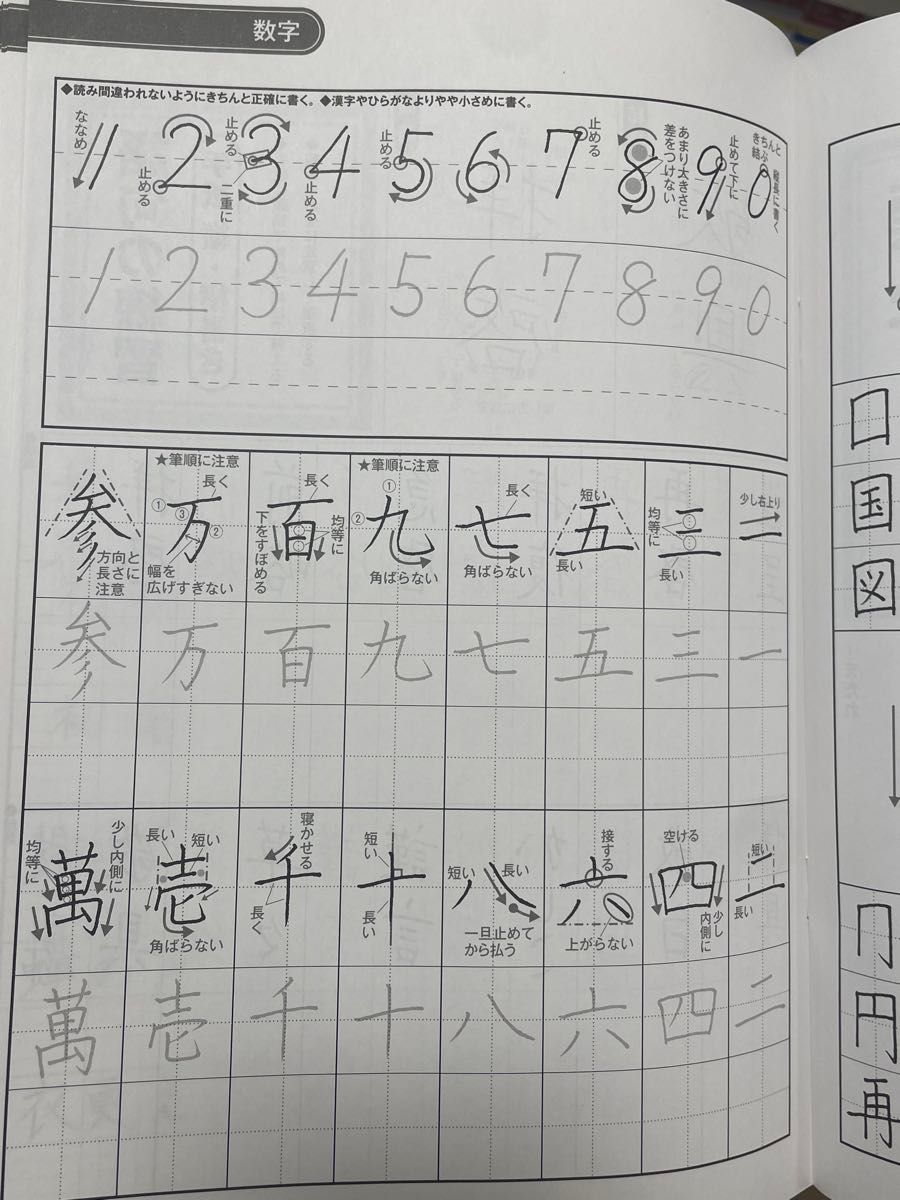 数字
◆読み間違われないようにきちんと正確に書く。◆漢字やひらがなよりやや小さめに書く。
1 2 3 4 5 6 7 8 9 0
ななめ
止める
止める
二重に
止める
止める
止める
あまり大きさに
差をつけない
止めて下に
きちんと
き結ぶ
縦長に書く
1 2 3 4 5 6 7 8 9 0
一
少し右上り
三
均等に
長い
五
短い
長い
七
長く
角ばらない
★筆順に注意
九
①
②
角ばらない
百
長く
均等に
下をすぼめる
★筆順に注意
万
長く
①
③
②
幅を
広げすぎない
参
方向と
長さに
注意
一 三 五 七 九 百 万 参
二
短い
長い
四
空ける
少し
内側に
六
接する
上がらない
八
短い
長い
一旦止めて
から払う
十
短い
長い
千
寝かせる
長く
壱
長い
短い
角ばらない
萬
少し内側に
均等に
二 四 六 八 十 千 壱 萬
国
図
円
再